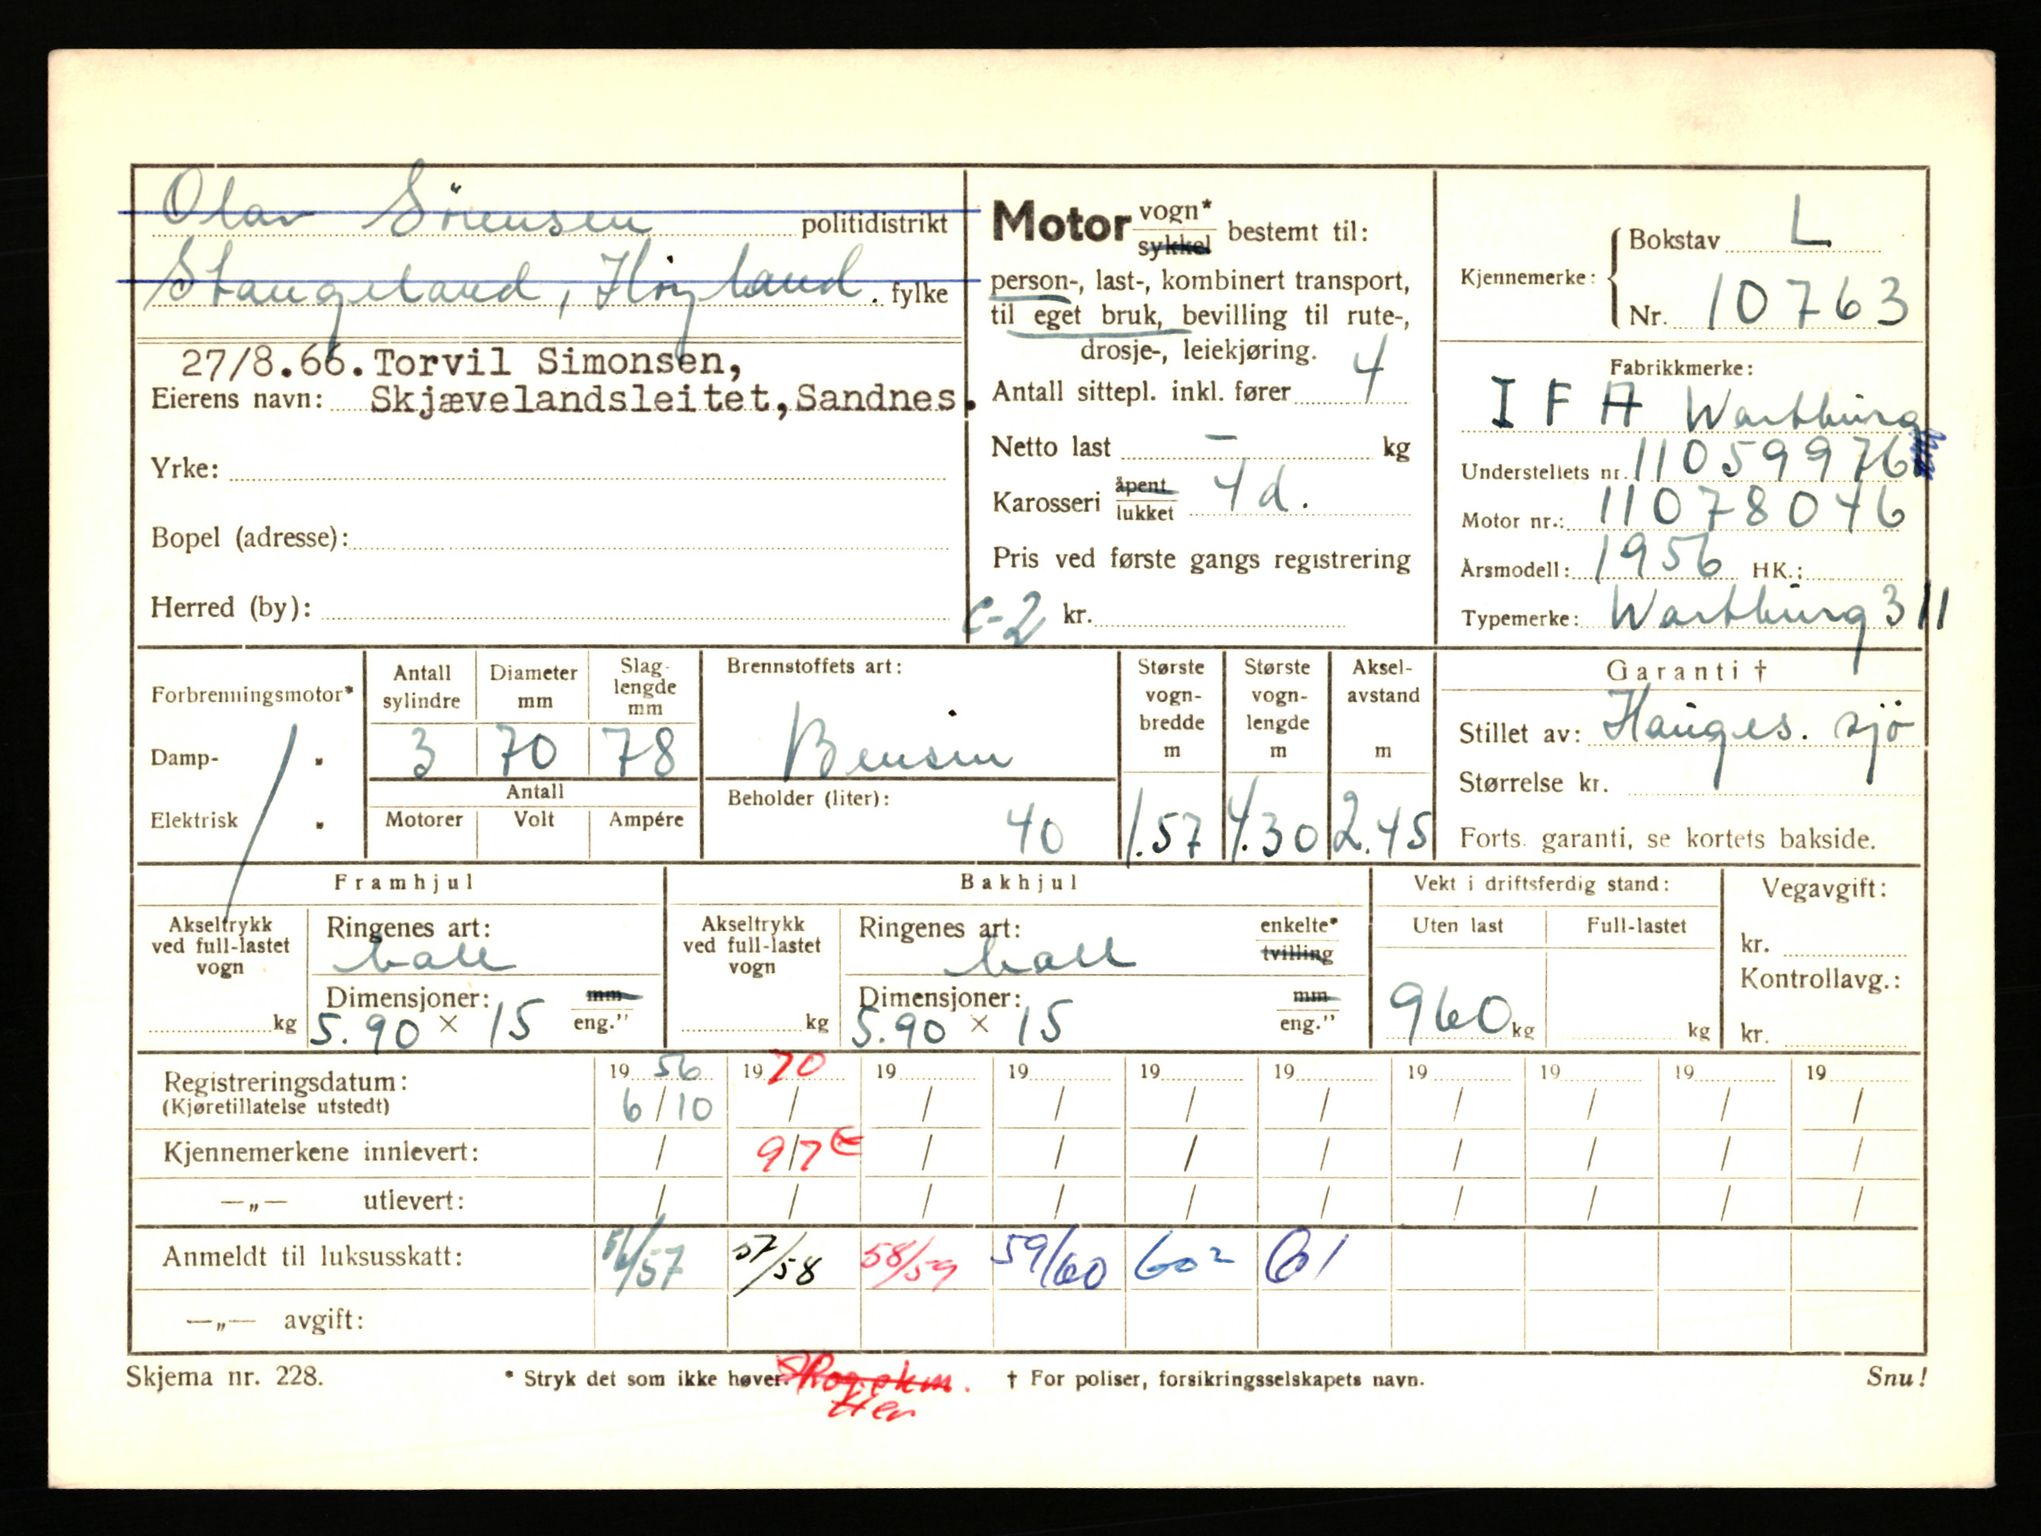 Olav Sörensen politidistrikt
Stangeland, Höyland. fylke
27/8.66. Torvil Simonsen,
Eierens navn: Skjævelandsleitet, Sandnes.
Yrke:
Bopel (adresse):
Herred (by):
Motor vogn* sykkel bestemt til:
person-, last-, kombinert transport,
til eget bruk, bevilling til rute-,
drosje-, leiekjøring.
Antall sittepl. inkl. fører 4
Netto last — kg
Karosseri åpent lukket 4 d.
Pris ved første gangs registrering
C-2 kr.
Kjennemerke: Bokstav L
Nr. 10763
Fabrikkmerke:
IFA Wartburg
Understellets nr. 11059976
Motor nr.: 11078046
Årsmodell: 1956 HK.:
Typemerke: Wartburg 311
Forbrenningsmotor*
Damp- "
Elektrisk "
Antall sylindre Diameter mm Slaglengde mm
3 70 78
Antall
Motorer Volt Ampére
Brennstoffets art:
Bensin
Beholder (liter):
40
Største vognbredde m Største vognlengde m Akselavstand m
1.57 4.30 2.45
Garanti †
Stillet av: Hauges. sjö
Størrelse kr.
Forts. garanti, se kortets bakside.
Framhjul
Akseltrykk ved full-lastet vogn
kg
Ringenes art:
ball
Dimensjoner: mm
5.90 × 15 eng."
Bakhjul
Akseltrykk ved full-lastet vogn
kg
Ringenes art: enkelte*
ball tvilling
Dimensjoner: mm
5.90 × 15 eng."
Vekt i driftsferdig stand:
Uten last Full-lastet
960 kg kg
Vegavgift:
kr.
Kontrollavg.:
kr.
Registreringsdatum: 19 56 19 70 19 19 19 19 19 19 19 19
(Kjøretillatelse utstedt) 6/10 / / / / / / / / /
Kjennemerkene innlevert: / 9/7 / / / / / / / /
—„— utlevert: / / / / / / / / / /
Anmeldt til luksusskatt: 56/57 57/58 58/59 59/60 60² 61
—„— avgift:
Skjema nr. 228. * Stryk det som ikke høver. † For poliser, forsikringsselskapets navn. Snu!